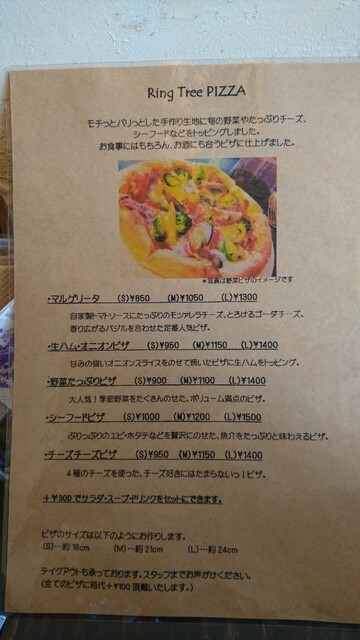 Ring Tree PIZZA
モチっとパリっとした手作り生地に旬の野菜やたっぷりチーズ、
シーフードなどをトッピングしました。
お食事にはもちろん、お酒にも合うピザに仕上げました。
*写真は野菜ピザのイメージです
・マルゲリータ (S)¥850 (M)¥1050 (L)¥1300
自家製トマトソースにたっぷりのモッツァレラチーズ、とろけるゴーダチーズ、
香り広がるバジルを合わせた定番人気ピザ。
・生ハム・オニオンピザ (S)¥950 (M)¥1150 (L)¥1400
甘みの強いオニオンスライスをのせて焼いたピザに生ハムをトッピング。
・野菜たっぷりピザ (S)¥900 (M)¥1100 (L)¥1400
大人気!季節野菜をたくさんのせた、ボリューム満点のピザ。
・シーフードピザ (S)¥1000 (M)¥1200 (L)¥1500
ぷりっぷりのエビ・ホタテなどを贅沢にのせた、魚介をたっぷりと味わえるピザ。
・チーズチーズピザ (S)¥950 (M)¥1150 (L)¥1400
4種のチーズを使った、チーズ好きにはたまらないっ!ピザ。
+¥300でサラダ・スープ・ドリンクをセットにできます。
ピザのサイズは以下のようにお作りします。
(S)…約18cm (M)…約21cm (L)…約24cm
テイクアウトも承っております。スタッフまでお声がけください。
(全てのピザに箱代+¥100頂戴いたします。)